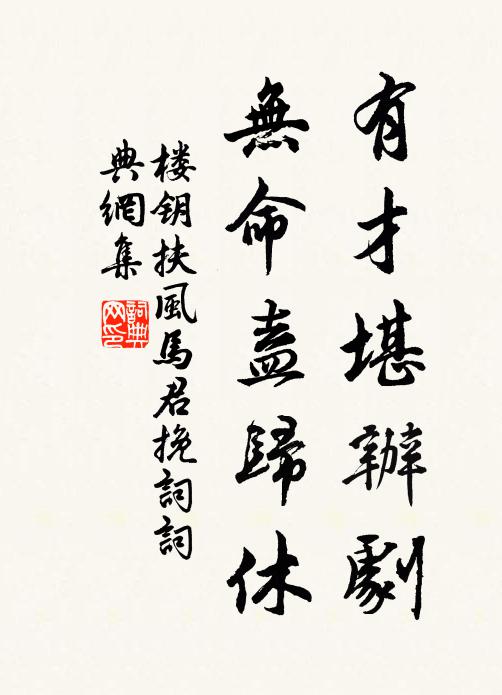 有才堪辦劇
無命盍歸休
楼钥扶風馬君挽詞詞
典網集
詞典
网印